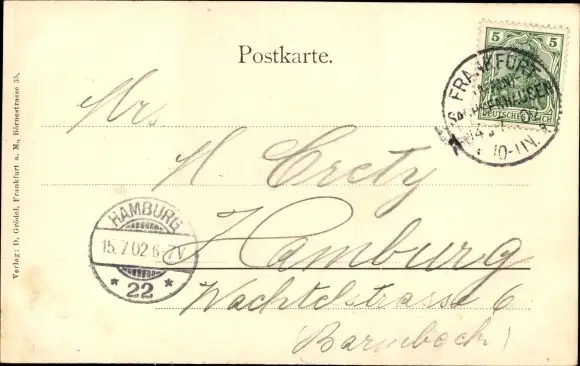 Postkarte.
5 5
DEUTSCHES REICH
FRANKFURT
SACHSENHAUSEN
10-11 V.
H. Crety
Hamburg
Wachtelstrasse 6
(Barmbeck)
HAMBURG
15.7.02 6-7V
* 22 *
Verlag: D. Grödel, Frankfurt a. M., Börnestrasse 35,